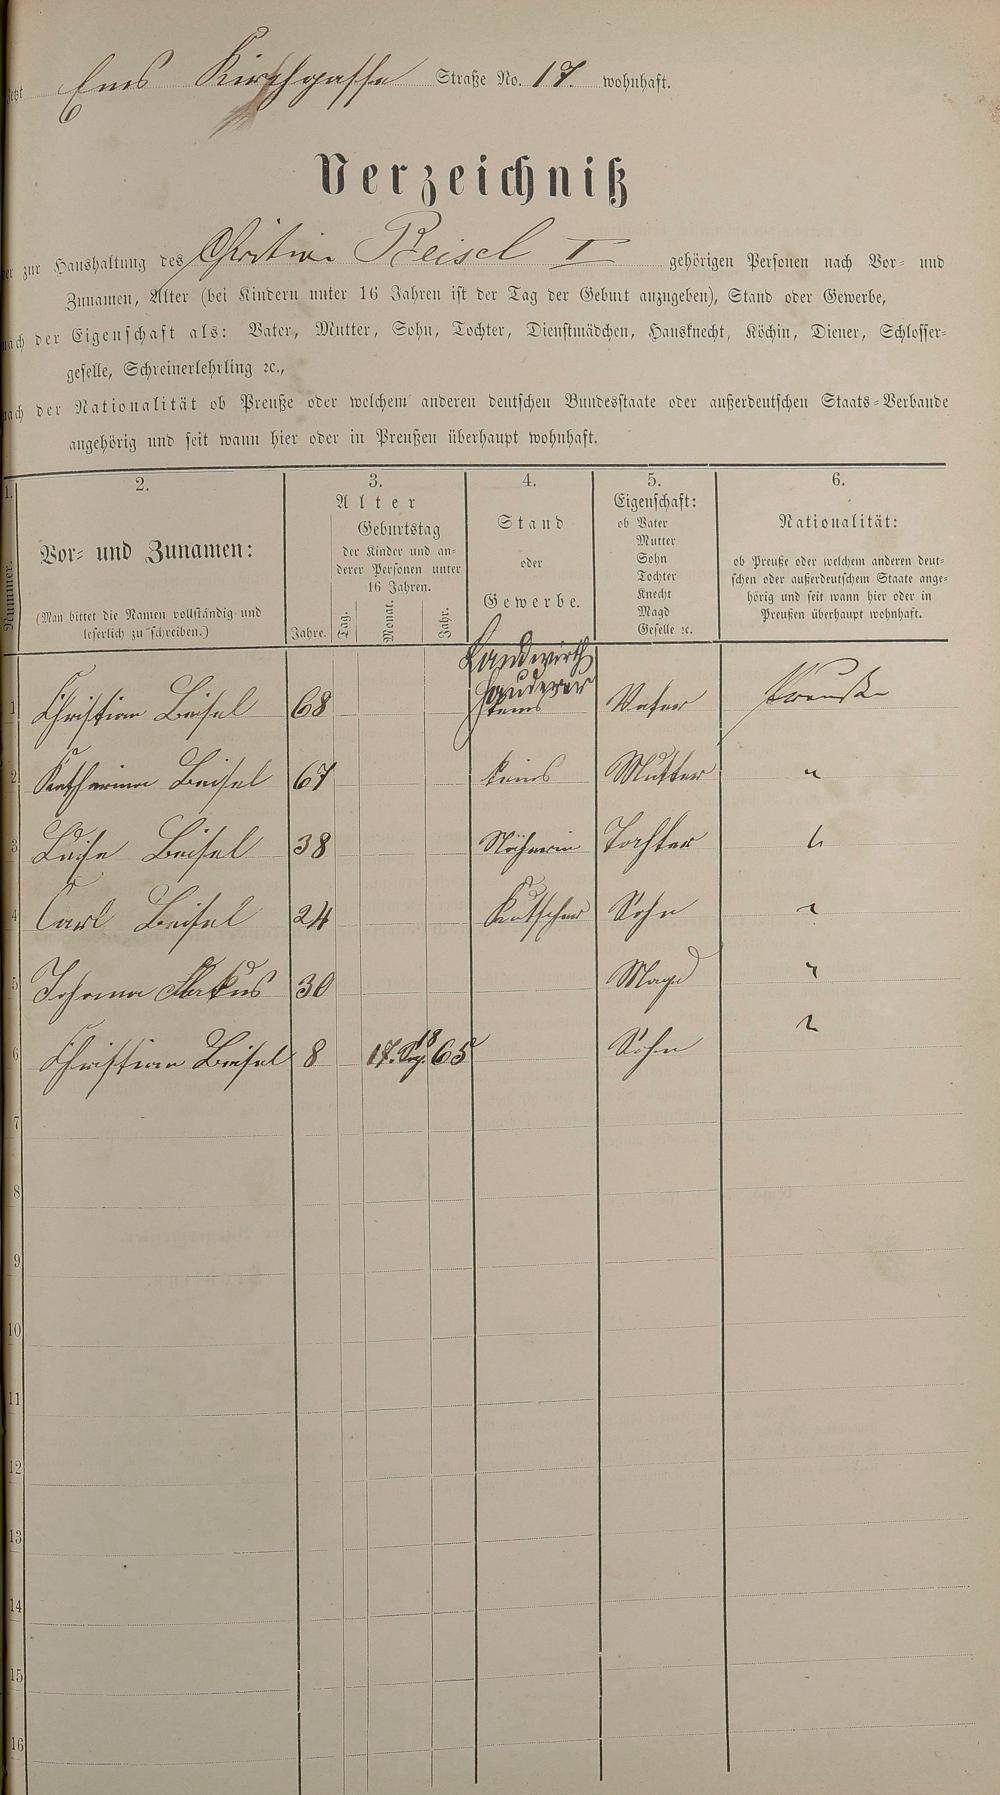 Jetzt Ems Kirchgasse Straße No. 17. wohnhaft.
Verzeichniß
der zur Haushaltung des Christian Beisel I gehörigen Personen nach Vor- und
Zunamen, Alter (bei Kindern unter 16 Jahren ist der Tag der Geburt anzugeben), Stand oder Gewerbe,
nach der Eigenschaft als: Vater, Mutter, Sohn, Tochter, Dienstmädchen, Hausknecht, Köchin, Diener, Schlosser-
geselle, Schreinerlehrling ꝛc.,
nach der Nationalität ob Preuße oder welchem anderen deutschen Bundesstaate oder außerdeutschen Staats-Verbande
angehörig und seit wann hier oder in Preußen überhaupt wohnhaft.
1.
Nummer.
2.
Vor- und Zunamen:
(Man bittet die Namen vollständig und
leserlich zu schreiben.)
3.
Alter
Jahre.
Geburtstag
der Kinder und an-
derer Personen unter
16 Jahren.
Tag. Monat. Jahr.
4.
Stand
oder
Gewerbe.
5.
Eigenschaft:
ob Vater
Mutter
Sohn
Tochter
Knecht
Magd
Geselle ꝛc.
6.
Nationalität:
ob Preuße oder welchem anderen deut-
schen oder außerdeutschem Staate ange-
hörig und seit wann hier oder in
Preußen überhaupt wohnhaft.
Landwirth
Hauderer
1 Christian Beisel 68 keins Vater Preuße
2 Katharina Beisel 67 keins Mutter "
3 Luise Beisel 38 Näherin Tochter "
4 Carl Beisel 24 Kutscher Sohn "
5 Johanna 30 Magd "
6 Christian Beisel 8 17. 18 65 Sohn "
7
8
9
10
11
12
13
14
15
16